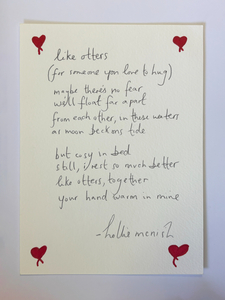 like otters
(for someone you love to hug)
maybe there's no fear
we'll float far apart
from each other, in these waters
as moon beckons tide
but cosy in bed
still, i rest so much better
like otters, together
your hand warm in mine
- hollie mcnish